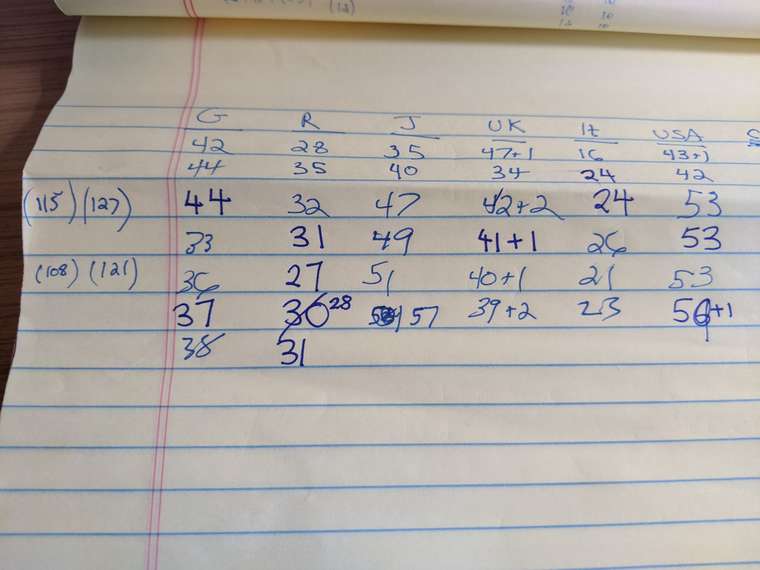 G R J UK It USA
42 28 35 47+1 16 43+1
44 35 40 34 24 42
(115) (127) 44 32 47 42+2 24 53
33 31 49 41+1 26 53
(108) (121) 36 27 51 40+1 21 53
37 28 57 39+2 23 +1
38 31